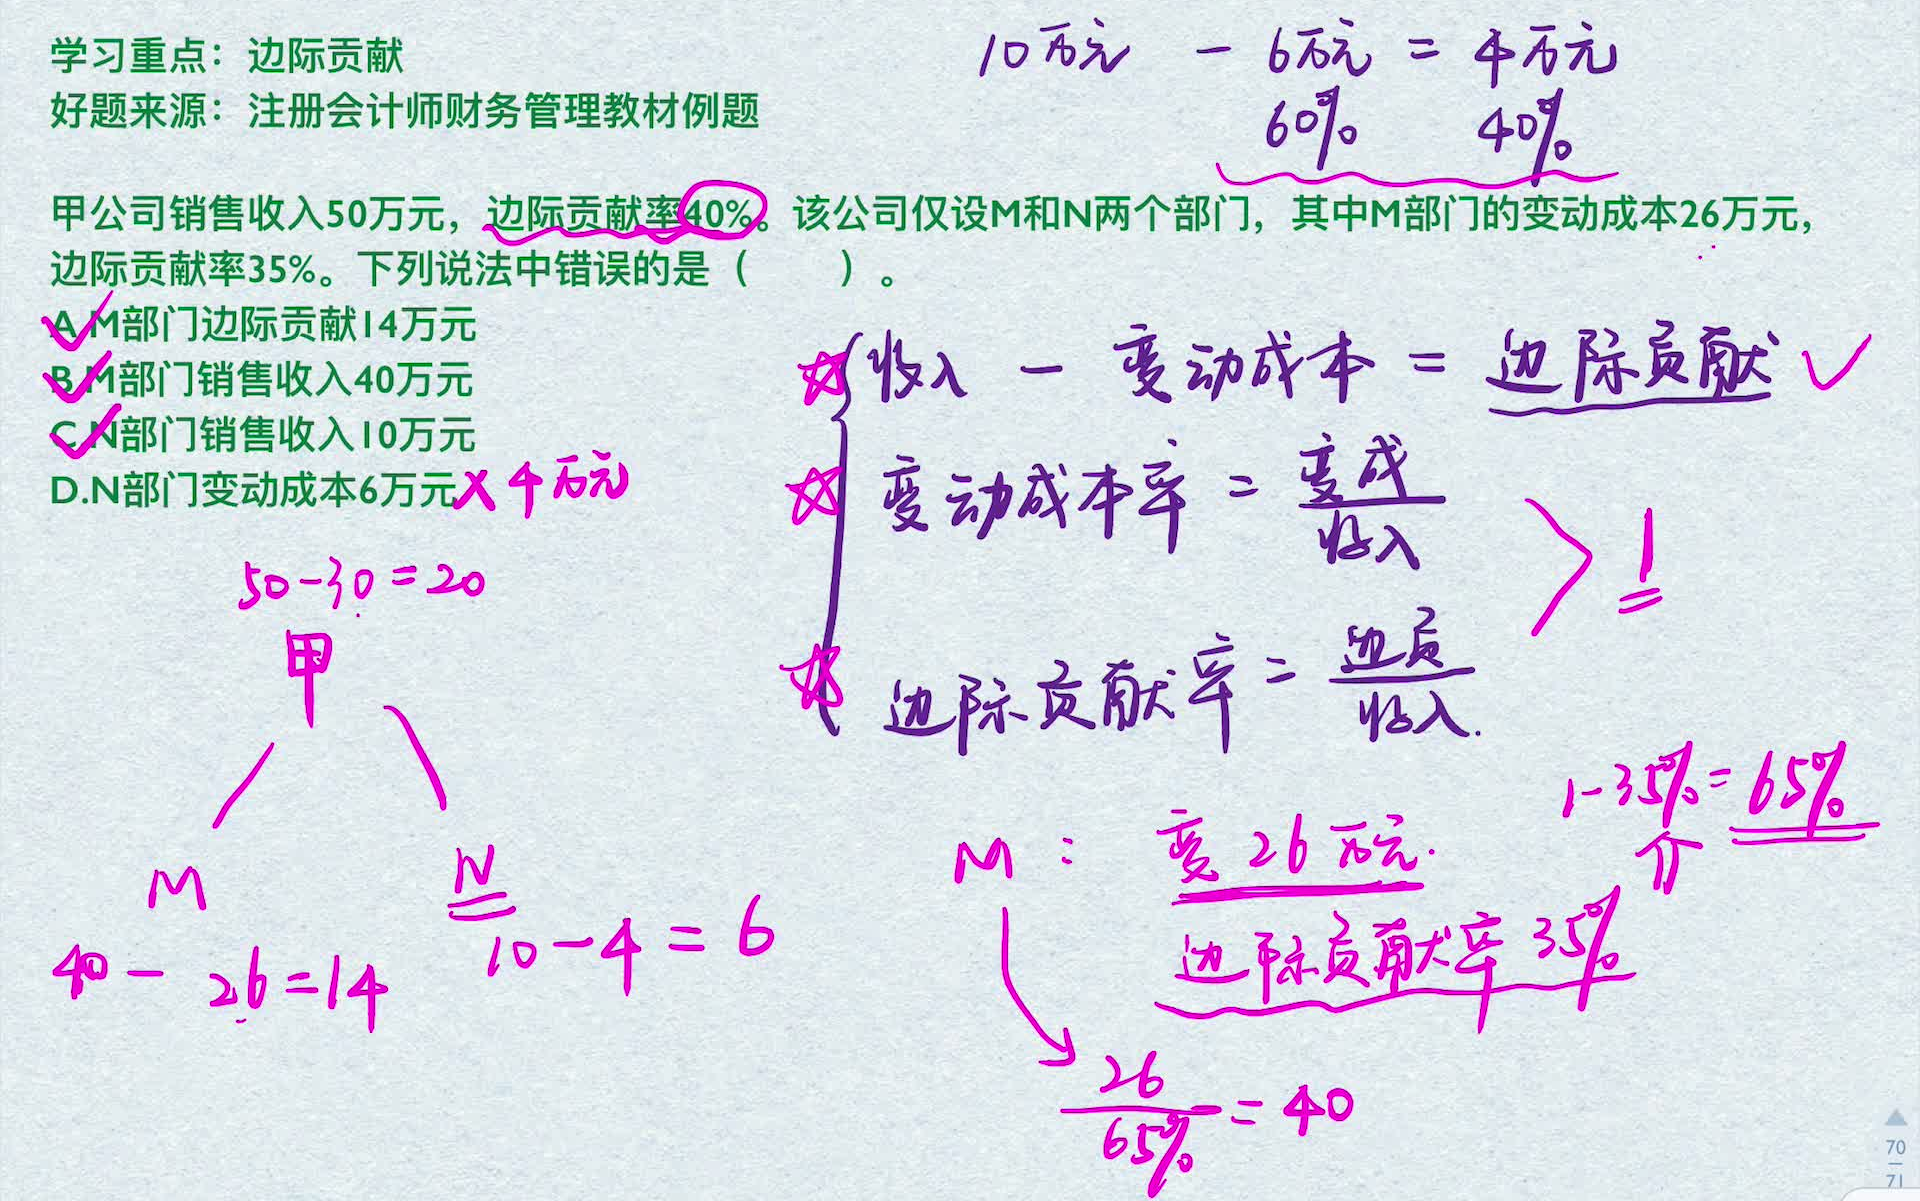 学习重点：边际贡献
好题来源：注册会计师财务管理教材例题
10万元 - 6万元 = 4万元
60% 40%
甲公司销售收入50万元，边际贡献率40%。该公司仅设M和N两个部门，其中M部门的变动成本26万元，
边际贡献率35%。下列说法中错误的是（　　）。
A.M部门边际贡献14万元
B.M部门销售收入40万元
C.N部门销售收入10万元
D.N部门变动成本6万元 × 4万元
收入 - 变动成本 = 边际贡献
变动成本率 = 变成/收入
边际贡献率 = 边贡/收入
1
50-30=20
甲
M N
40-26=14
10-4=6
M: 变26万元.
边际贡献率35%
1-35%=65%
26/65%=40
70
71